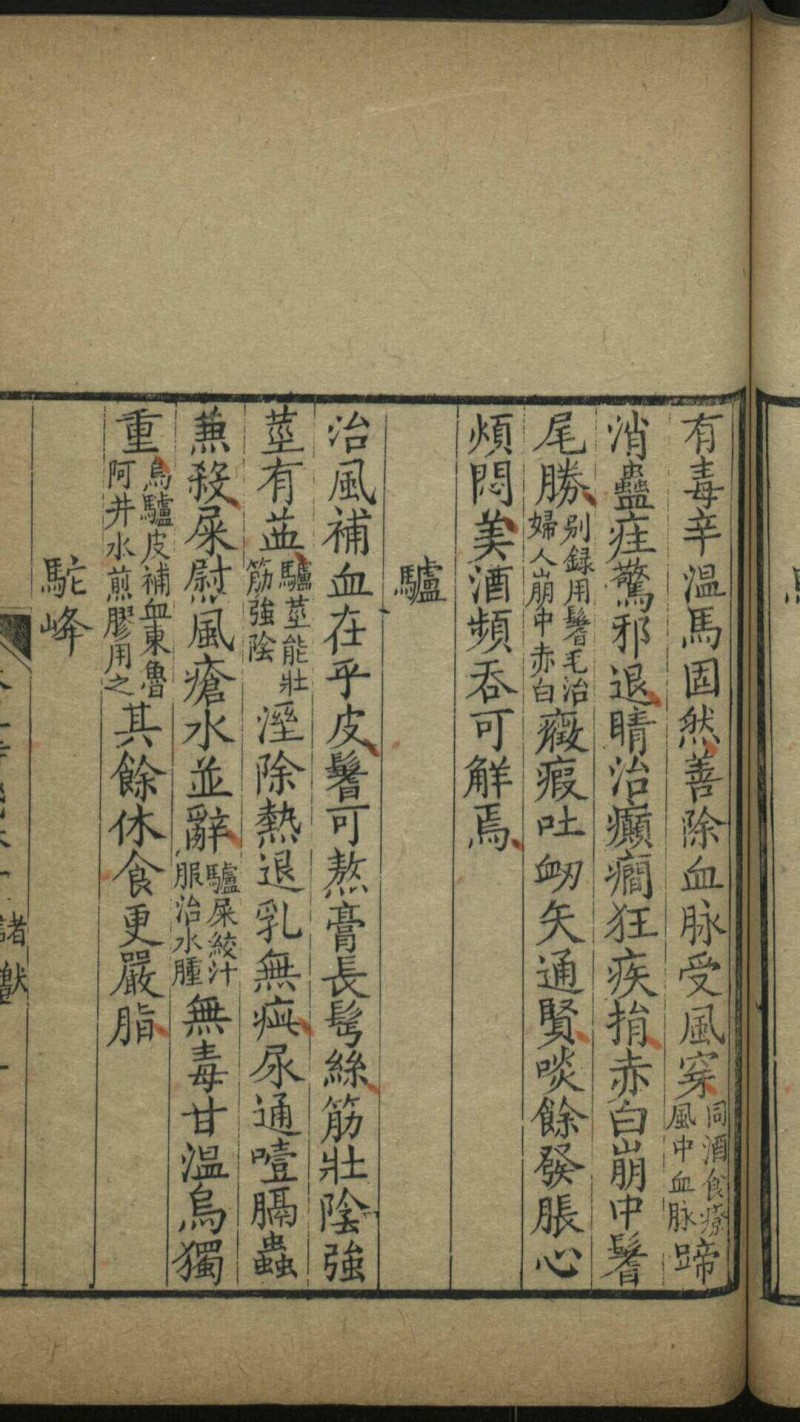 有毒辛温馬固然善除血脉受風穿同酒食療風中血脉蹄
消蠱疰驚邪退睛治癲癇狂疾捐赤白崩中鬐
尾勝别録用鬐毛治婦人崩中赤白癥瘕吐衂矢通賢啖餘發脹心
煩悶美酒頻吞可解焉
驢
治風補血在乎皮鬐可熬膏長髩絲筋壯陰強
莖有益驢莖能壯筋強陰溼除熱退乳無疵尿通噎膈蟲
兼殺屎尉風瘡水並辭驢屎絞汁服治水腫無毒甘温烏獨
重烏驢皮補血東魯阿井水煎膠用之其餘休食更嚴脂
駝峰
諸獸